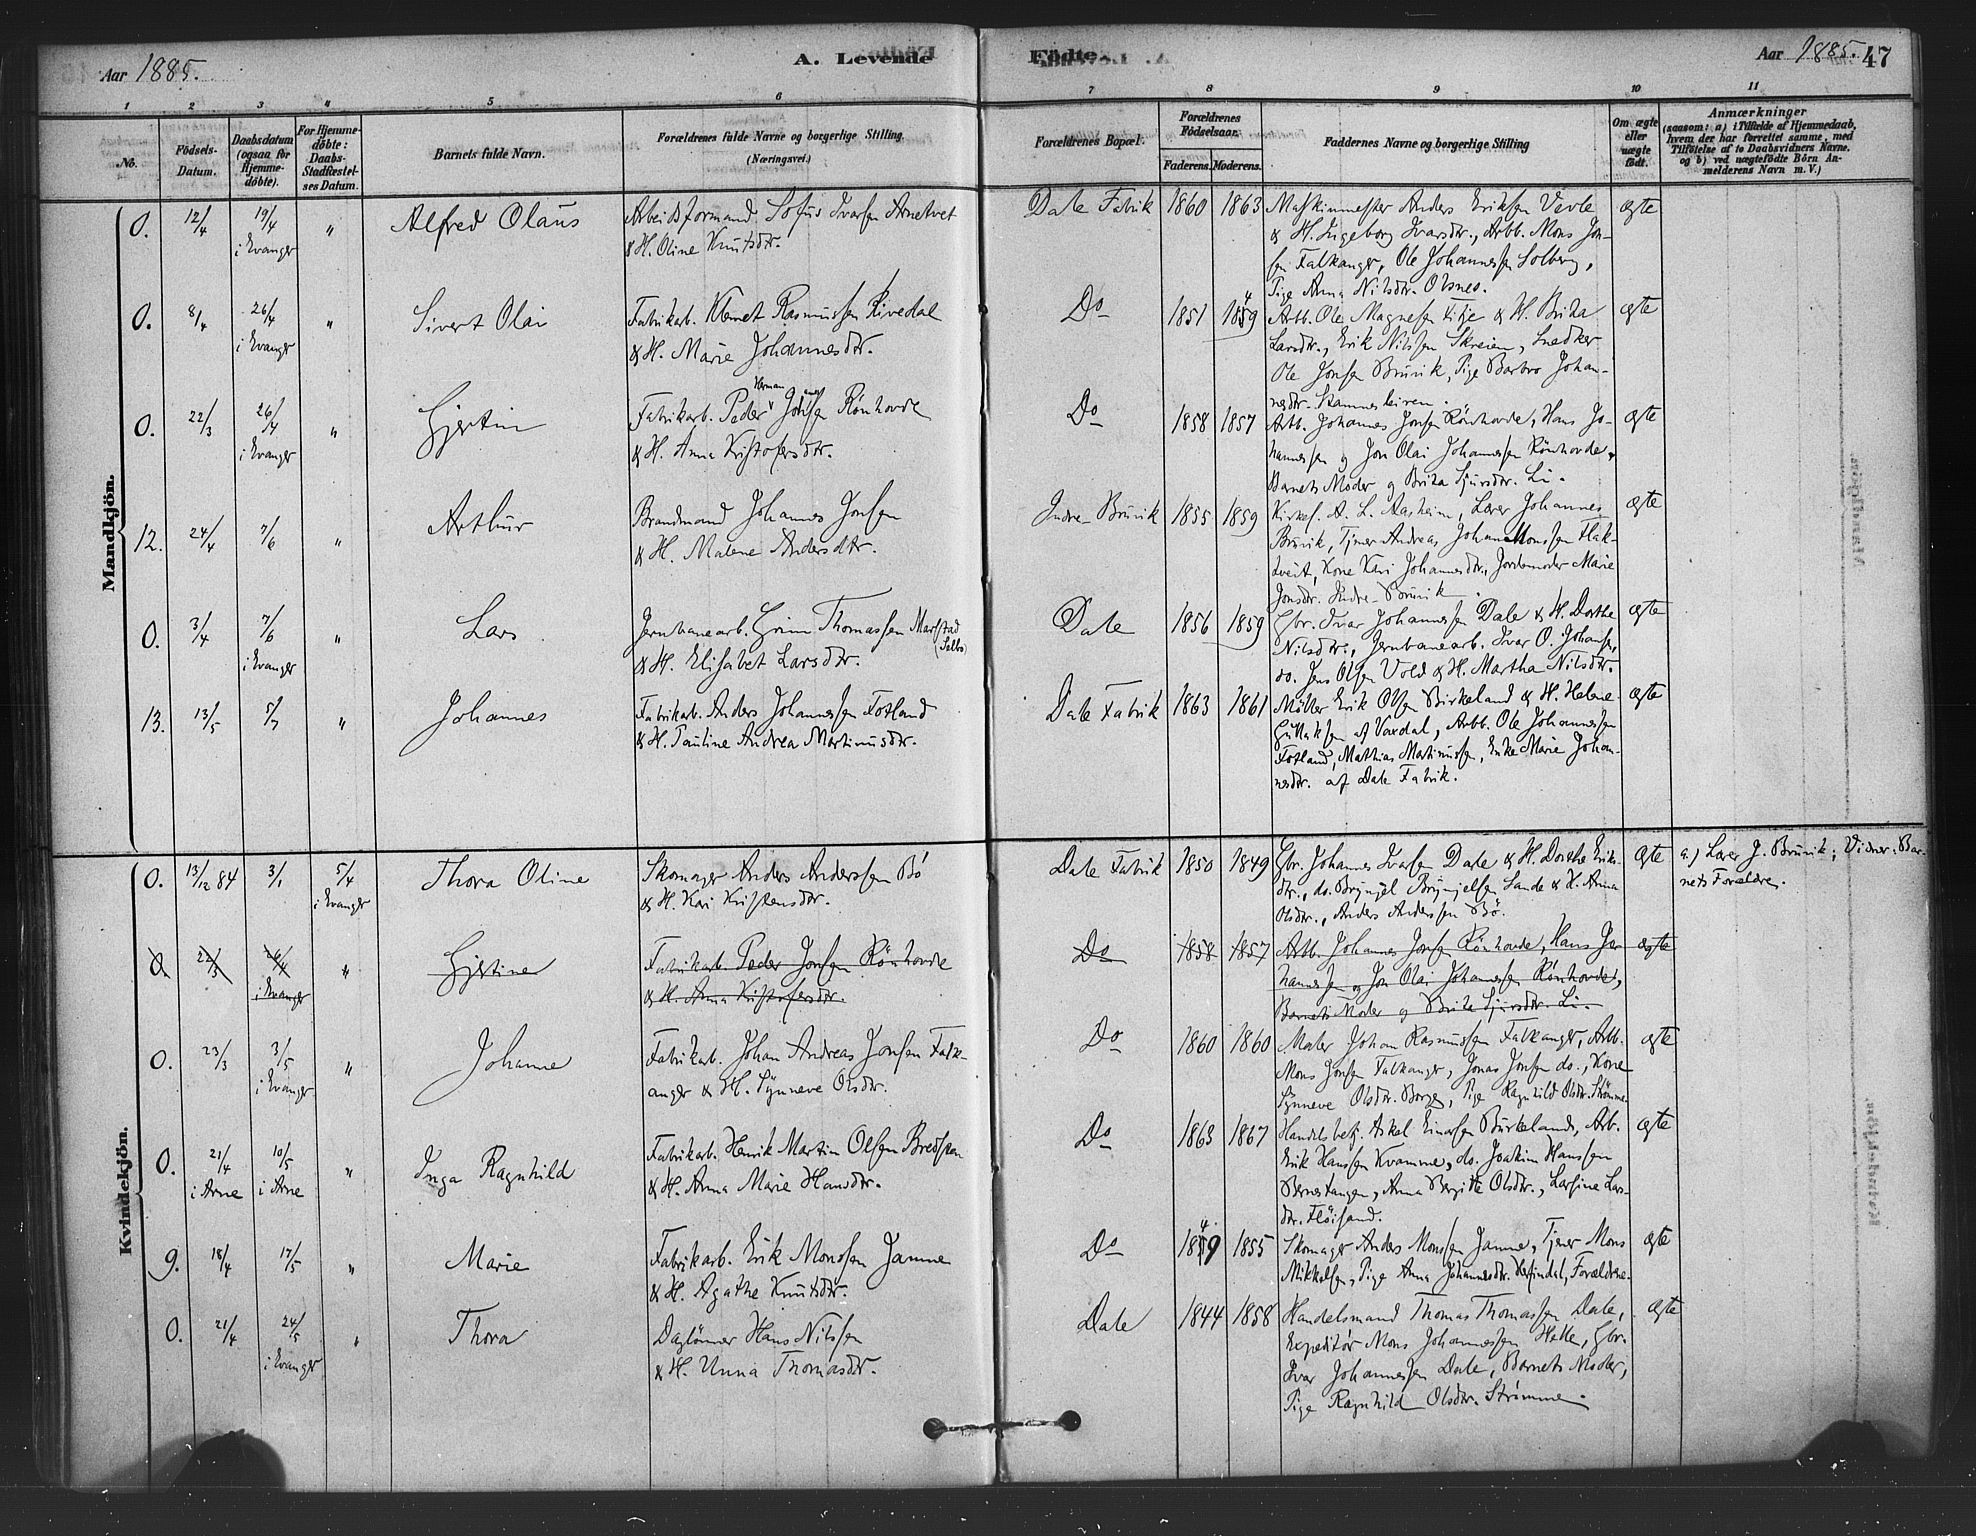 Aar 1885.
A. Levende Fødte.
Aar 1885. 47
1 2 3 4 5 6 7 8 9 10 11
No.
Födsels-
Datum.
Daabsdatum
(ogsaa for
Hjemme-
döbte).
For Hjemme-
döbte:
Daabs-
Stadfæstel-
ses Datum.
Barnets fulde Navn.
Forældrenes fulde Navne og borgerlige Stilling
(Næringsvei.)
Forældrenes Bopæl.
Forældrenes
Födselsaar.
Faderens. Moderens.
Faddernes Navne og borgerlige Stilling
Om ægte
eller
uægte
født.
Anmærkninger
(saasom: a) i Tilfælde af Hjemmedaab,
hvem der har forrettet samme, med
Tilföielse af to Daabsvidners Navne.
og b) ved uægtefödte Börn An-
melderens Navn m. V.)
Mandkjön.
0. 12/4 19/4 i Evanger " Alfred Olaus
Arbeidsformand Sofus Ivarsen Arnetvet
& H. Oline Knutsdtr.
Dale Fabrik 1860 1863
Maskinmester Anders Eriksen Vevle
& H. Ingeborg Ivarsdtr., Arbb. Mons Jon-
sen Falkanger, Ole Johannessen Solberg,
Pige Anna Nilsdtr. Olsnes.
ægte
0. 8/4 26/4 i Evanger " Sivert Olai
Fabrikarb. Klemet Rasmussen Rivedal
& H. Marie Johannesdtr.
Do 1851 1859 4
Arbb. Ole Magnesen Fitje & H. Brita
Larsdtr., Erik Nilssen Skreien, Snedker
Ole Jonsen Bruvik, Pige Barbro Johan-
nesdtr. Stamnesleiren.
ægte
0. 22/3 26/4 i Evanger " Gjertin
Fabrikarb. Peder Herman Jonsen Rönhovde
& H. Anna Kristofersdtr.
Do 1858 1857
Arbb. Johannes Jonsen Rönhovde, Hans Jo-
hannessen og Jon Olai Johannessen Rönhovde,
Barnets Moder og Brita Sjursdtr. Li.
ægte
12. 24/4 7/6 " Arthur
Brandmand Johannes Jonsen
& H. Malene Andersdtr.
Indre-Bruvik 1855 1859
Kirkes. A. L. Aasheim, Lærer Johannes
Bruvik, Tjener Andreas Johan Monssen Flak-
tveit, Kone Kari Johannesdtr., Jordemoder Marie
Jonsdtr. Indre-Bruvik.
ægte
0. 3/4 7/6 i Evanger " Lars
Jernbanearb. Grim Thomassen Marstad
(Selbo)
& H. Elisabet Larsdtr.
Dale 1856 1859
Gbr. Ivar Johannessen Dale & H. Dorthe
Nilsdtr., Jernbanearb. Ivar O. Johansen,
do. Jens Olsen Vold & H. Martha Nilsdtr.
ægte
13. 13/5 5/7 " Johannes
Fabrikarb. Anders Johannessen Fotland
& H. Pauline Andrea Martinusdtr.
Dale Fabrik 1863 1861
Möller Erik Olsen Birkeland & H. Helene
Gullaksen af Vaxdal, Arbb. Ole Johannessen
Fotland, Mathias Martinussen, Enke Marie Johan-
nesdtr. af Dale Fabrik.
ægte
Kvindekjön.
0. 13/12 84 3/1 5/4 i Evanger Thora Oline
Skomager Anders Anderssen Bö
& H. Kari Kristensdtr.
Dale Fabrik 1850 1849
Gbr. Johannes Ivarsen Dale & H. Dorthe Erik-
dtr., do. Brynjel Brynjelsen Lande & H. Anna
Olsdtr., Anders Anderssen Bö.
ægte
a.) Lærer J. Bruvik; Vidner: Bar-
nets Forældre.
0. 22/3 26/4 i Evanger " Gjertine
Fabrikarb. Peder Jonsen Rönhovde
& H. Anna Kristofersdtr.
Do 1858 1857
Arbb. Johannes Jonsen Rönhovde, Hans Jo-
hannessen og Jon Olai Johannessen Rönhovde,
Barnets Moder og Brita Sjursdtr. Li.
ægte
0. 23/3 3/5 i Evanger " Johanne
Fabrikarb. Johan Andreas Jonsen Falk-
anger & H. Synneve Olsdtr.
Do 1860 1860
Maler Johan Rasmussen Falkanger, Arbb.
Mons Jonsen Falkanger, Jonas Jonsen do., Kone
Synneve Olsdtr. Borge, Pige Ragnhild Olsdtr. Strömme
ægte
0. 21/4 i Arne 10/5 i Arne " Inga Ragnhild
Fabrikarb. Henrik Martin Olsen Bredsten
& H. Anna Marie Hansdtr.
Do 1863 1867
Handelsbetj. Askel Einarsen Burkeland, Arb.
Erik Hanssen Kvamme, do. Joakim Hanssen
Bernestangen, Anna Bergitte Olsdtr., Larsine Lars-
dtr. Flöisand.
ægte
9. 18/4 17/5 " Marie
Fabrikarb. Erik Monssen Jamne
& H. Agathe Knutsdtr.
Do 1849 1855
Skomager Anders Monssen Jamne, Tjener Mons
Mikkelsen, Pige Anna Johannesdtr. Herfindal, Forældrene.
ægte
0. 21/4 24/5 i Evanger " Thora
Daglönner Hans Nilssen
& H. Unna Thomasdtr.
Dale 1844 1858
Handelsmand Thomas Thomassen Dale,
Expeditör Mons Johannessen Helle, Gbr.
Ivar Johannessen Dale, Barnets Moder,
Pige Ragnhild Olsdtr. Strömme.
ægte